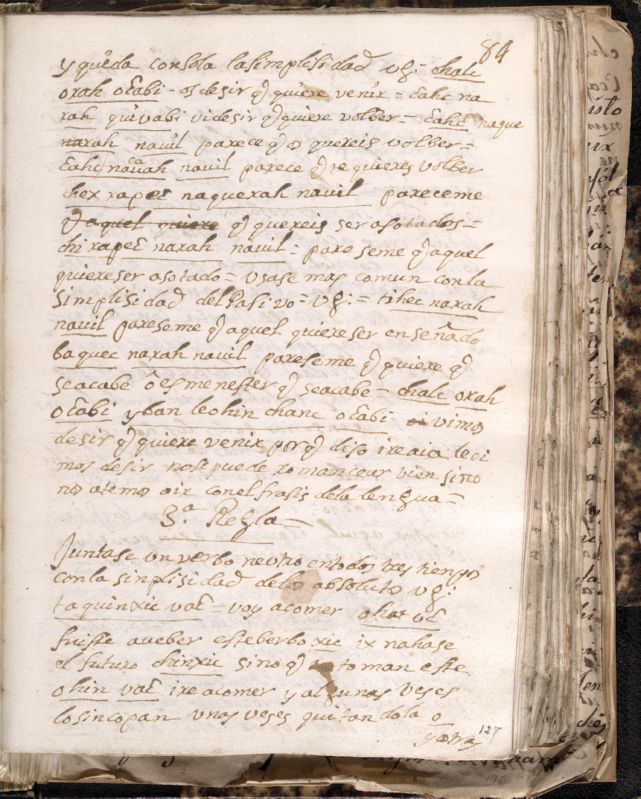 84
y queda con sola la simplisidad vg: chalc
orah ocabi - es desir q̃ quiere venir = cahc na
rah quivabi vi desir q̃ quiere volber = cahc naque
narah navil parece q̃ quereis volber =
cahc navah navil parece q̃ te quieres volber
chex rapec naquerah navil pareceme
q̃ aquel quiere q̃ quereis ser asotados =
chi rapec narah navil = pareseme q̃ aquel
quiere ser asotado = usase mas comun con la
simplisidad del pasivo = vg: = tihec narah
navil pareseme q̃ aquel quiere ser enseñado
baquec narah navil pareseme q̃ quiere q̃
se acabe o es menester q̃ se acabe - chalc orah
ocabi y ban leohin chanc ocabi vimos
desir q̃ quiere venir porq̃ diso
mas desir no se puede romancear bien sino
nos atemos con el frasis dela lengua =
3.ª Regla =
Juntase un verbo neutro en todos tres tiempos
con la simplisidad delos absolutos vg:
taquinxic vac = voy a comer
fuiste a ueber este berbo xic ix nahase
el futuro chinxic sino q̃ toman este
ohin vac ire a comer y algunas veses
lo sincopan unas veses quitandola o
127 y otra